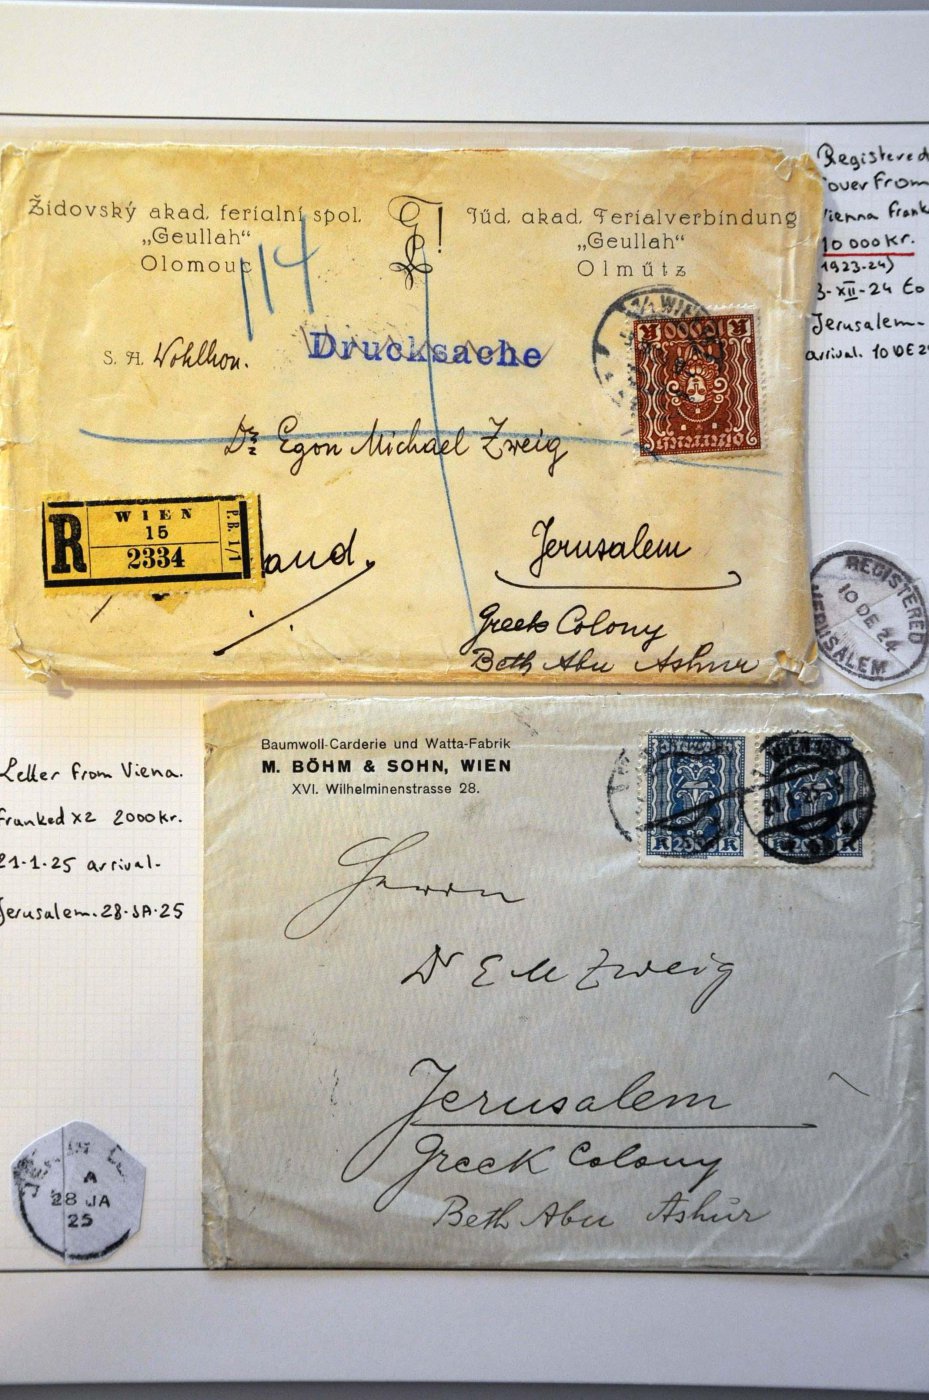 Židovský akad. ferialní spol.
„Geullah“
Olomouc
Jüd. akad. Ferialverbindung
„Geullah“
Olmütz
114
Drucksache
S. H. Wohlhon.
WIEN
10000
Dr. Egon Michael Zweig
Jerusalem
Greek Colony
Beth Abu Ashur
R
WIEN
15
2334
P.B. 1/1
and.
Registered
Cover From
Vienna Frank
10 000 Kr.
1923-24)
3-XII-24 to
Jerusalem-
arrival. 10 DE 24
REGISTERED
10 DE 24
JERUSALEM
Letter From Viena.
Franked x2 2000 kr.
21-1-25 arrival-
Jerusalem. 28-JA-25
A
28 JA
25
Baumwoll-Carderie und Watta-Fabrik
M. BÖHM & SOHN, WIEN
XVI. Wilhelminenstrasse 28.
Herrn
Dr E M Zweig
Jerusalem
Greek Colony
Beth Abu Ashur